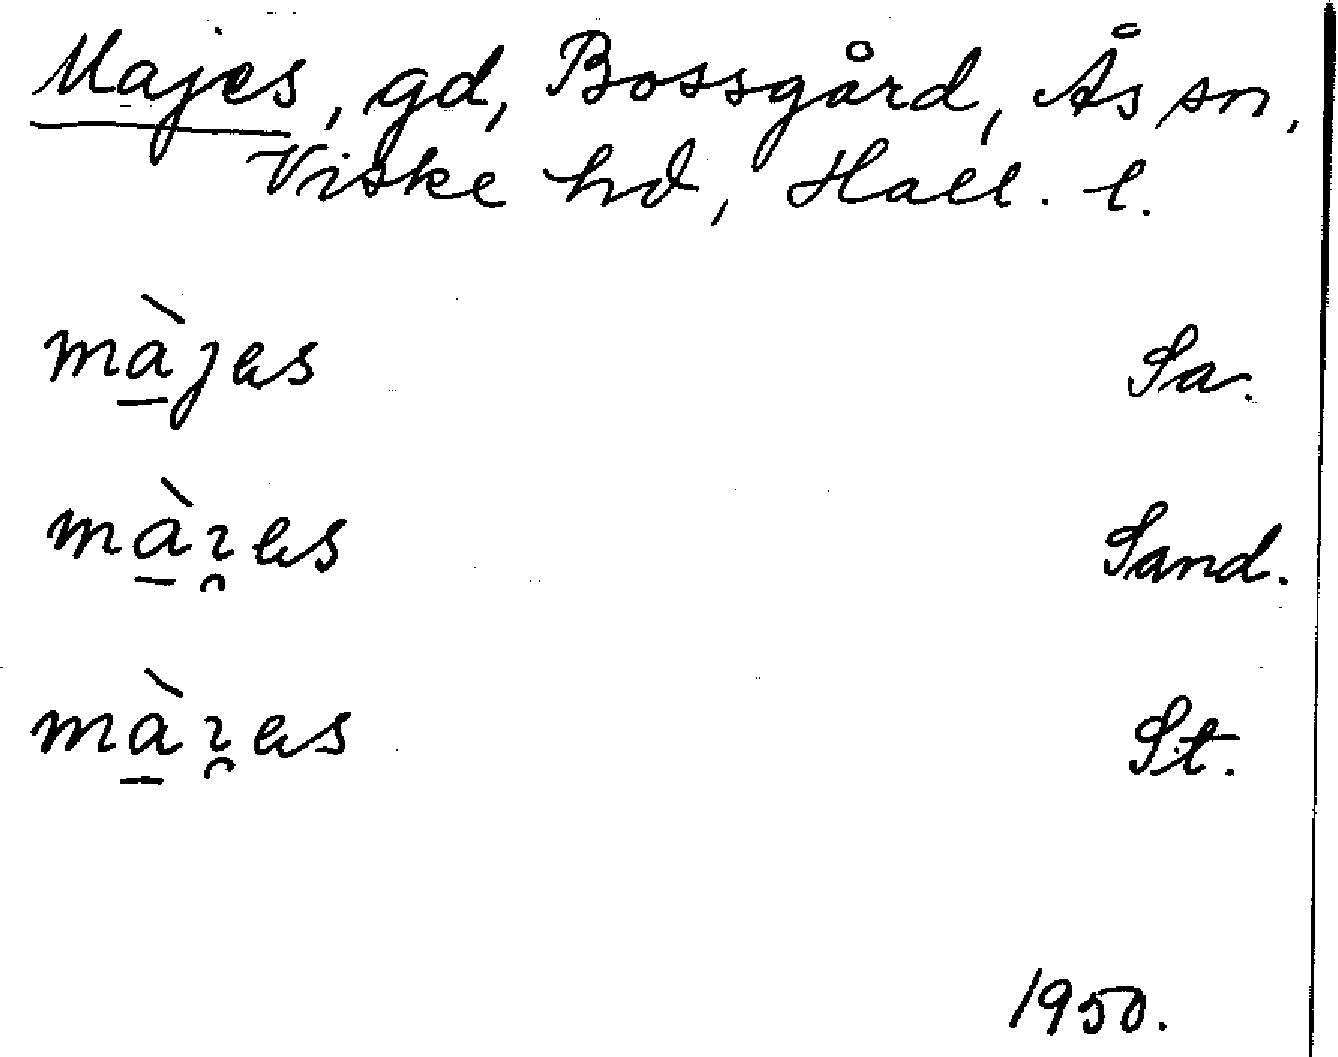 Majes, gd, Bossgård, Ås sn,
Viske hd, Hall. l.
màjes Sa.
màı̯es Sand.
màı̯es St.
1950.